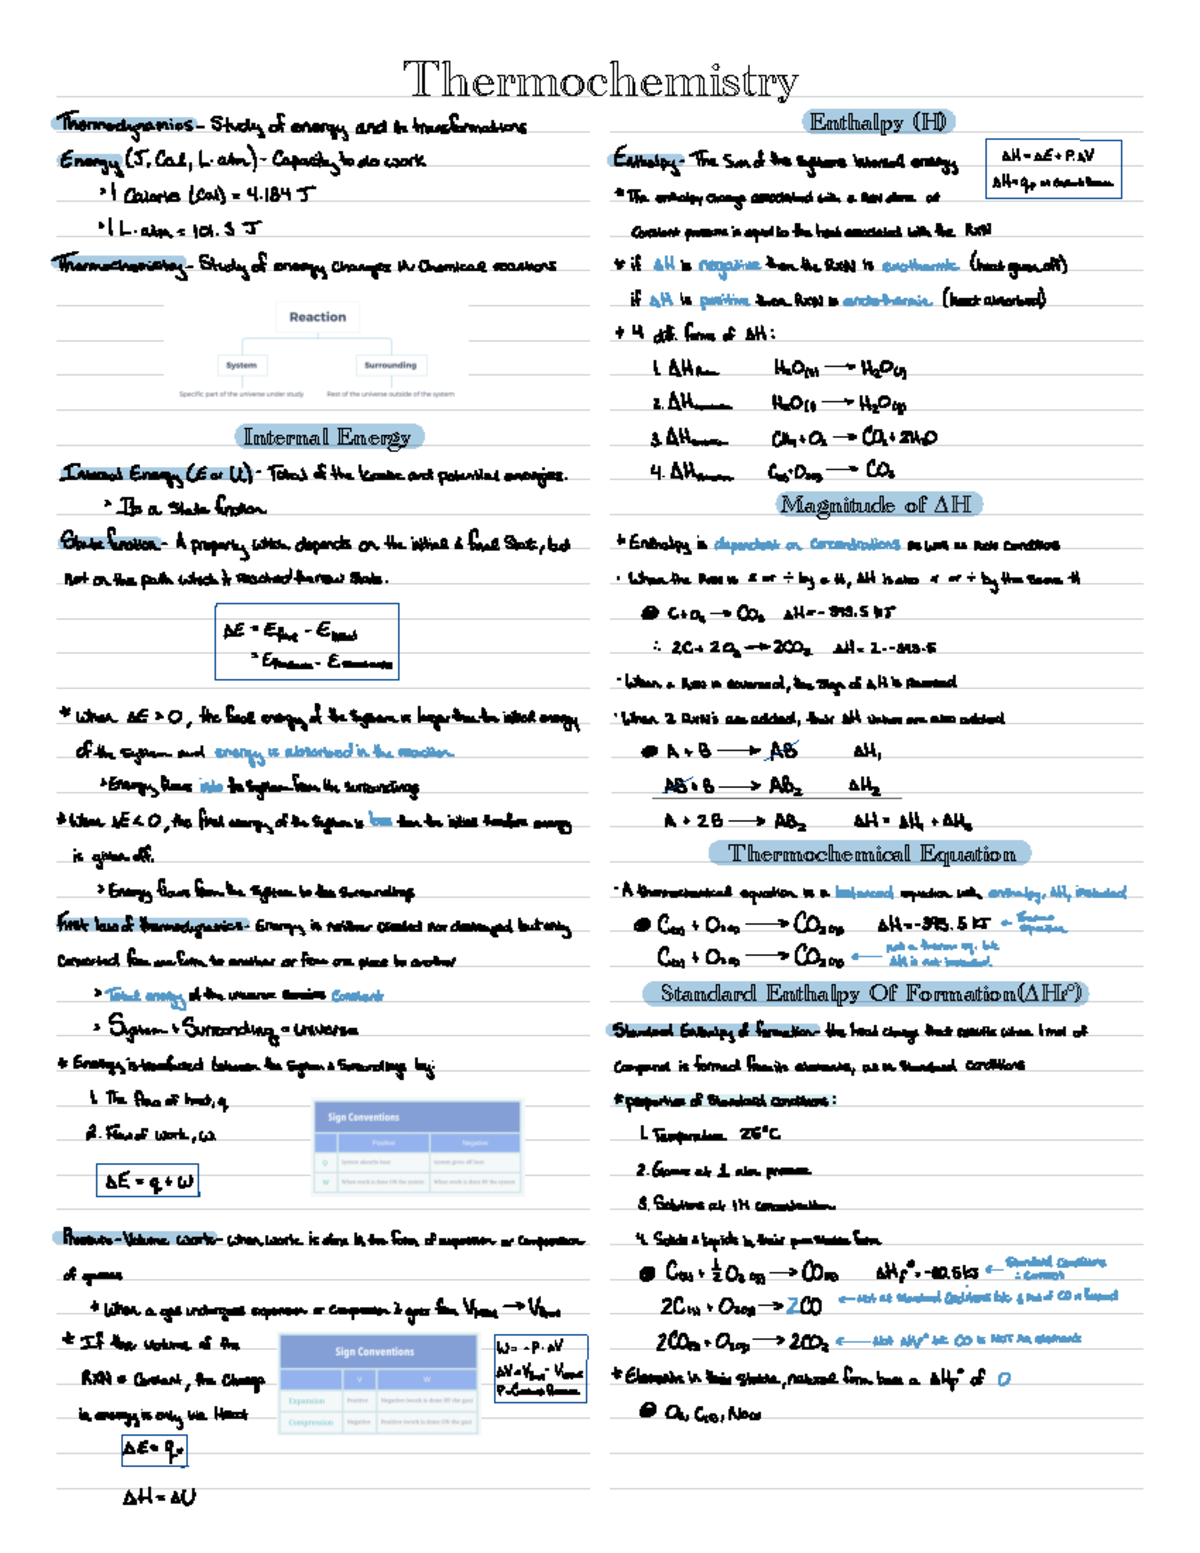 Thermochemistry
Thermodynamics - Study of energy and its transformations
Energy (J, Cal, L·atm) - Capacity to do work
> 1 Calorie (Cal) = 4.184 J
> 1 L·atm = 101.3 J
Thermochemistry - Study of energy changes in Chemical reactions
Reaction
System
Surrounding
Specific part of the universe under study
Rest of the universe outside of the system
Internal Energy
Internal Energy (E or U) - Total of the kinetic and potential energies.
> Its a State function
State function - A property which depends on the initial & final State, but
not on the path which it reached the new State.
ΔE = Efinal - Einitial
= Eproducts - Ereactants
* When ΔE > 0, the final energy of the System is larger than the initial energy
of the System and energy is absorbed in the reaction
> Energy flows into the System from the surroundings
* When ΔE < 0, the final energy of the System is less than the initial therefore energy
is given off.
> Energy flows from the System to the Surroundings
First law of thermodynamics - Energy is neither created nor destroyed but only
converted from one form to another or from one place to another
> Total energy of the universe remains Constant
> System + Surrounding = Universe
* Energy is transferred between the System & Surroundings by:
1. The flow of heat, q
2. Flow of work, w
Sign Conventions
Positive Negative
Q System absorbs heat System gives off heat
W When work is done ON the system When work is done BY the system
ΔE = q + w
Pressure-Volume Work - When work is done in the form of expansion or Compression
of gasses
* When a gas undergoes expansion or Compression it goes from Vinitial → Vfinal
* If the volume of the
RXN = Constant, the Change
in energy is only via Heat
ΔE = qv
ΔH = ΔU
Sign Conventions
V W
Expansion Positive Negative (work is done BY the gas)
Compression Negative Positive (work is done ON the gas)
W = -P·ΔV
ΔV = Vfinal - Vinitial
P = Constant Pressure
Enthalpy (H)
Enthalpy - The Sum of the Systems internal energy
ΔH = ΔE + P·ΔV
ΔH = qp at Constant Pressure
* The enthalpy change associated with a RXN done at
Constant pressure is equal to the heat associated with the RXN
* if ΔH is negative then the RXN is exothermic (heat given off)
if ΔH is positive then RXN is endothermic (heat absorbed)
* 4 diff. forms of ΔH:
1. ΔH H2O(s) → H2O(l)
2. ΔH H2O(l) → H2O(g)
3. ΔH CH4 + O2 → CO2 + 2H2O
4. ΔH C(s) + O2(g) → CO2
Magnitude of ΔH
* Enthalpy is dependent on Concentrations as well as RXN Conditions
· When the RXN is x or ÷ by a #, ΔH is also x or ÷ by the same #
C + O2 → CO2 ΔH = -393.5 KJ
∴ 2C + 2O2 → 2CO2 ΔH = 2·-393.5
· When a RXN is reversed, the sign of ΔH is Reversed
· When 2 RXN's are added, their ΔH values are also added
A + B → AB ΔH1
AB + B → AB2 ΔH2
A + 2B → AB2 ΔH = ΔH1 + ΔH2
Thermochemical Equation
· A thermochemical equation is a balanced equation with enthalpy, ΔH, included
C(s) + O2(g) → CO2(g) ΔH = -393.5 KJ ← Thermo Equation
C(s) + O2(g) → CO2(g) ← not a thermo eq. b/c ΔH is not included.
Standard Enthalpy Of Formation(ΔHf°)
Standard Enthalpy of formation - the heat change that results when 1 mol of
Compound is formed from its elements, all in Standard conditions
* properties of Standard conditions:
1. Temperature 25°C
2. Gasses at 1 atm pressure
3. Solutions at 1M concentration
4. Solids & liquids in their pure states form
C(s) + ½O2(g) → CO(g) ΔHf° = -110.5 KJ ← Standard Conditions ∴ Correct
2C(s) + O2(g) → 2CO ← Not at Standard Conditions b/c 2 mol of CO is formed
2CO(g) + O2(g) → 2CO2 ← Not ΔHf° b/c CO is NOT An element
* Elements in their stable, natural form have a ΔHf° of 0